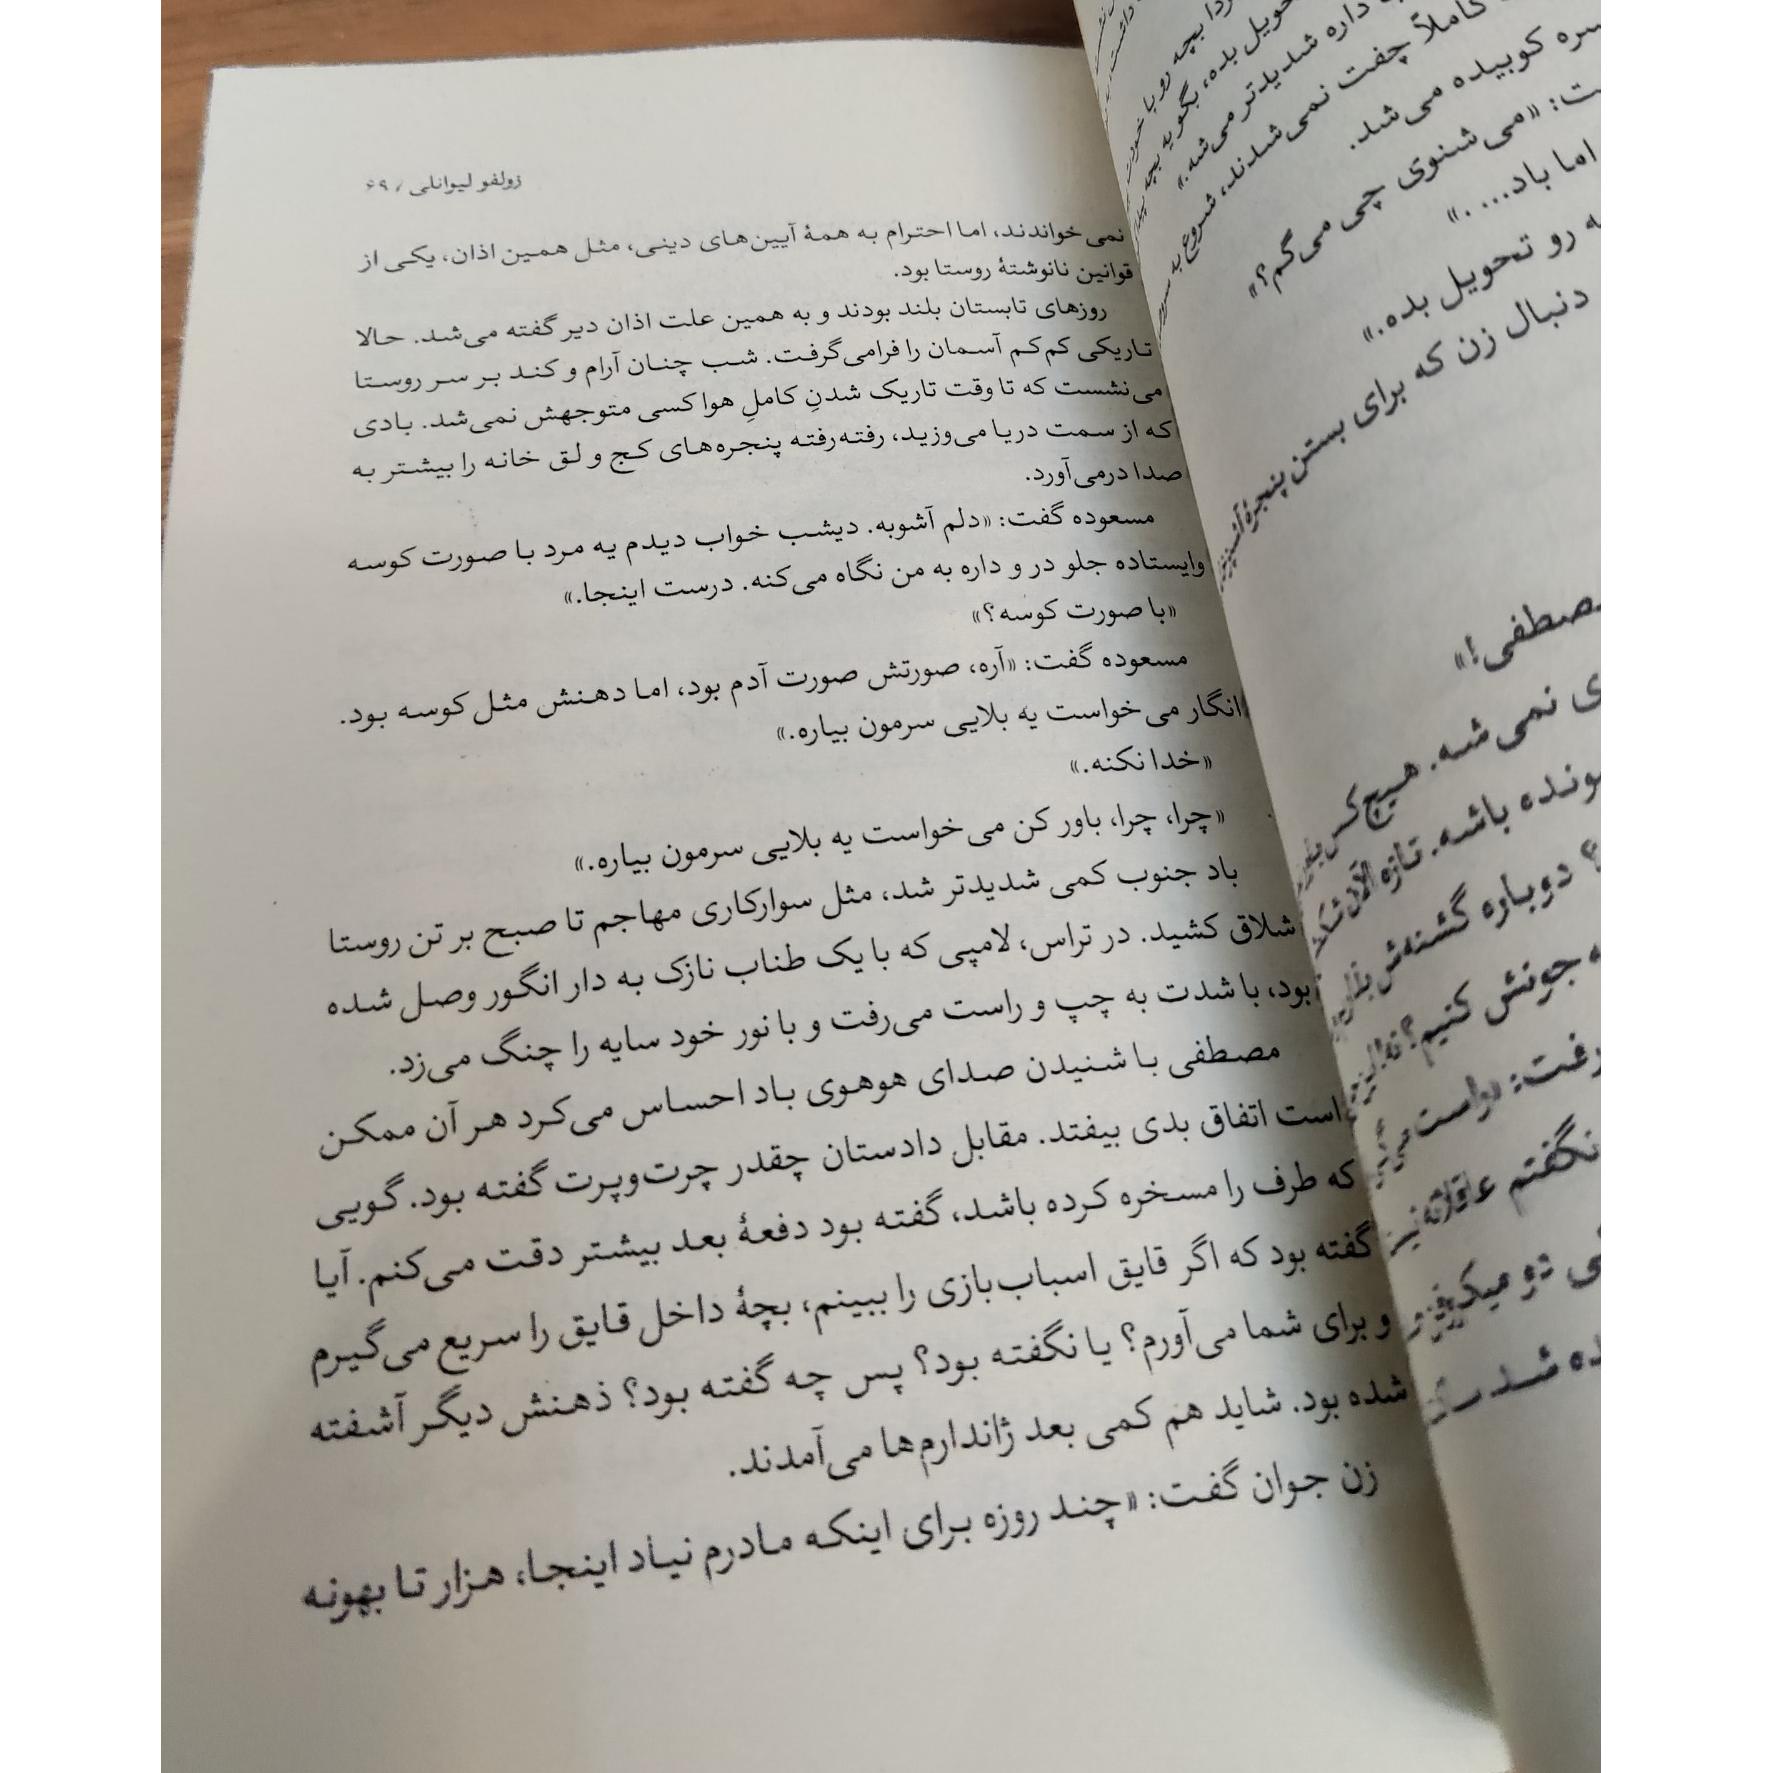 زولفو لیوانلی / ۶۹
نمی‌خواندند، اما احترام به همهٔ آیین‌های دینی، مثل همین اذان، یکی از
قوانین نانوشتهٔ روستا بود.
روزهای تابستان بلند بودند و به همین علت اذان دیر گفته می‌شد. حالا
تاریکی کم‌کم آسمان را فرامی‌گرفت. شب چنان آرام و کند بر سر روستا
می‌نشست که تا وقت تاریک شدنِ کاملِ هوا کسی متوجهش نمی‌شد. بادی
که از سمت دریا می‌وزید، رفته‌رفته پنجره‌های کج و لق خانه را بیشتر به
صدا درمی‌آورد.
مسعوده گفت: «دلم آشوبه. دیشب خواب دیدم یه مرد با صورت کوسه
وایستاده جلو در و داره به من نگاه می‌کنه. درست اینجا.»
«با صورت کوسه؟»
مسعوده گفت: «آره، صورتش صورت آدم بود، اما دهنش مثل کوسه بود.
انگار می‌خواست یه بلایی سرمون بیاره.»
«خدا نکنه.»
«چرا، چرا، باور کن می‌خواست یه بلایی سرمون بیاره.»
باد جنوب کمی شدیدتر شد، مثل سوارکاری مهاجم تا صبح بر تن روستا
شلاق کشید. در تراس، لامپی که با یک طناب نازک به دار انگور وصل شده
بود، با شدت به چپ و راست می‌رفت و با نور خود سایه را چنگ می‌زد.
مصطفی با شنیدن صدای هوهوی باد احساس می‌کرد هر آن ممکن
است اتفاق بدی بیفتد. مقابل دادستان چقدر چرت‌وپرت گفته بود. گویی
که طرف را مسخره کرده باشد، گفته بود دفعهٔ بعد بیشتر دقت می‌کنم. آیا
گفته بود که اگر قایق اسباب‌بازی را ببینم، بچهٔ داخل قایق را سریع می‌گیرم
و برای شما می‌آورم؟ یا نگفته بود؟ پس چه گفته بود؟ ذهنش دیگر آشفته
شده بود. شاید هم کمی بعد ژاندارم‌ها می‌آمدند.
زن جوان گفت: «چند روزه برای اینکه مادرم نیاد اینجا، هزار تا بهونه
بچه رو با
تحویل بده، بگو یه بچه
داره شدیدتر می‌شه.»
کاملاً چفت نمی‌شدند، شروع به
کوبیده می‌شد.
«می‌شنوی چی می‌گم؟»
اما باد... .»
رو تحویل بده.»
دنبال زن که برای بستن پنجرهٔ
مصطفی!»
نمی‌شه. هیچ‌کس
باشه. تازه الآن
دوباره گشنه‌ش
جونش کنیم؟
نگفتم
دو
شد